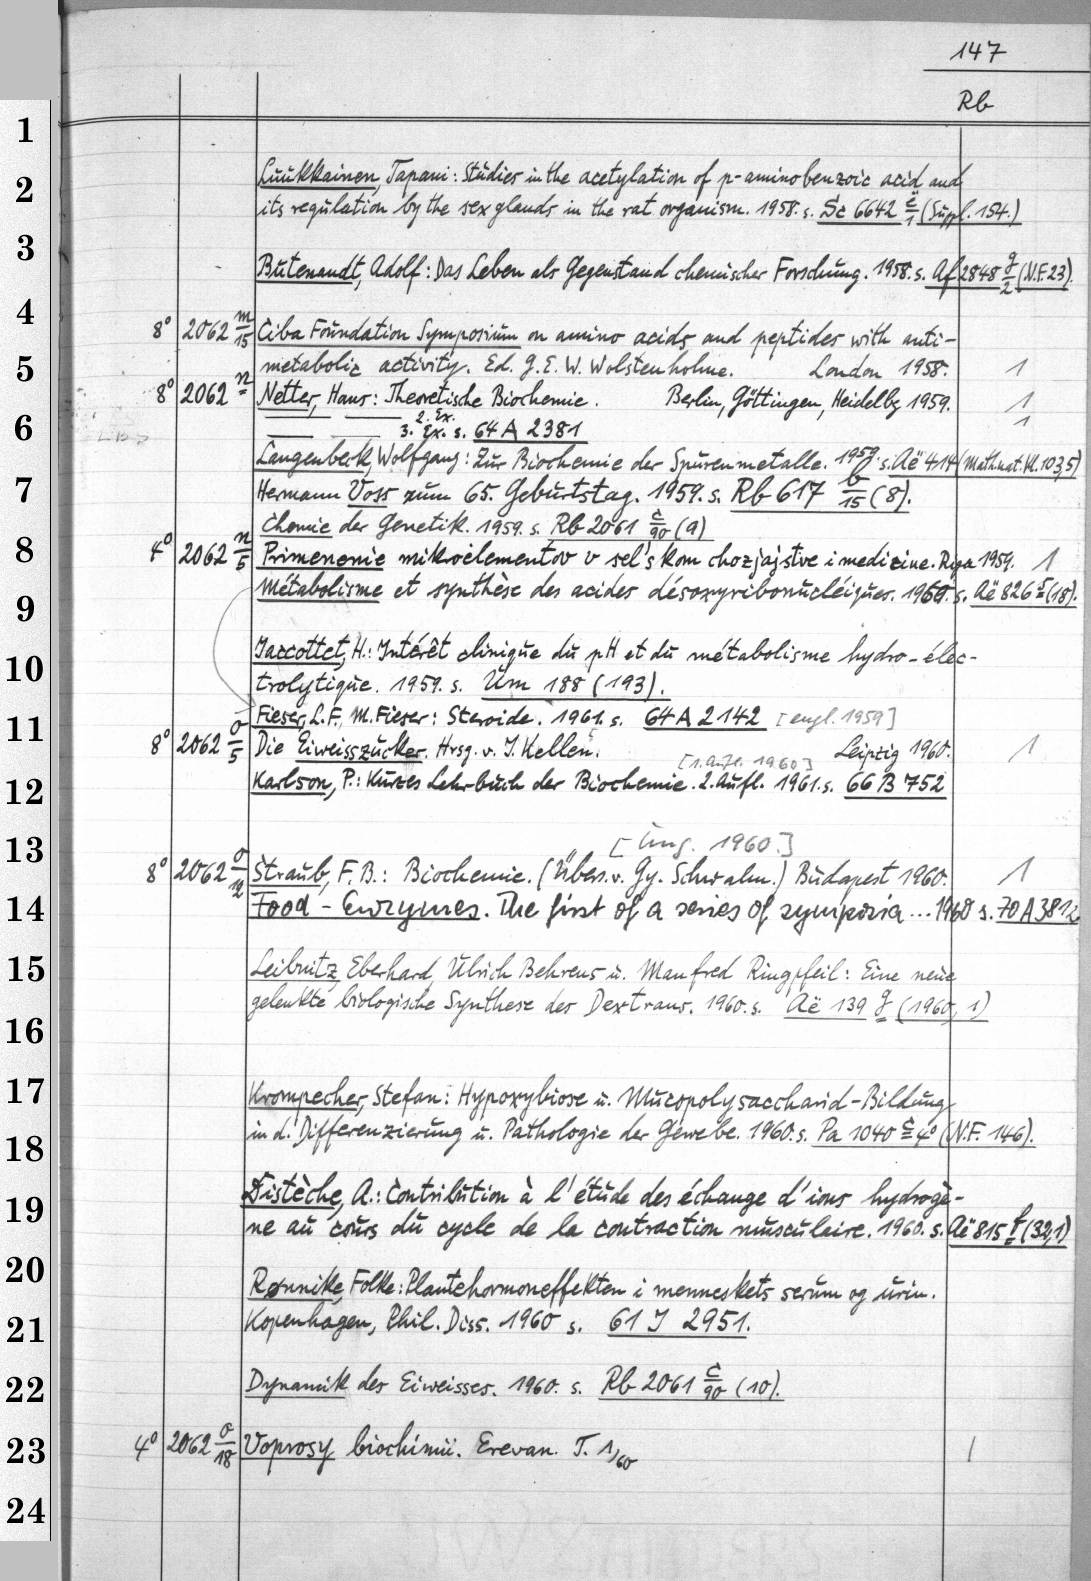 147
Rb
1
2
3
4
5
6
7
8
9
10
11
12
13
14
15
16
17
18
19
20
21
22
23
24
Luukkainen, Tapani: Studies in the acetylation of p-aminobenzoic acid and
its regulation by the sex glands in the rat organism. 1958. s. Sc 6642 c/1 (Suppl. 154.)
Butenandt, Adolf: Das Leben als Gegenstand chemischer Forschung. 1958. s. Af 2848 g/2 (N.F. 23).
8° 2062 m/15 Ciba Foundation Symposium on amino acids and peptides with anti-
metabolic activity. Ed. G.E.W. Wolstenholme. London 1958. 1
8° 2062 n Netter, Hans: Theoretische Biochemie. Berlin, Göttingen, Heidelbg 1959. 1
2. Ex. 1
3. Ex. s. 64 A 2381
Langenbeck, Wolfgang: Zur Biochemie der Spurenmetalle. 1959. s. Aë 414 (Math.nat. Kl. 103,5)
Hermann Voss zum 65. Geburtstag. 1959. s. Rb 617 b/15 (8).
Chemie der Genetik. 1959. s. Rb 2061 c/90 (9)
4° 2062 n/5 Primenenie mikroėlementov v sel'skom chozjajstve i medicine. Riga 1959. 1
Métabolisme et synthèse des acides désoxyribonucléiques. 1959. s. Aë 826 (18).
Jaccottet, H.: Intérêt clinique du pH et du métabolisme hydro-élec-
trolytique. 1959. s. Um 188 (193).
Fieser, L.F., M. Fieser: Steroide. 1961. s. 64 A 2142 [engl. 1959]
8° 2062 o/5 Die Eiweisszucker. Hrsg. v. J. Kellen. Leipzig 1960. 1
[1. Aufl. 1960]
Karlson, P.: Kurzes Lehrbuch der Biochemie. 2. Aufl. 1961. s. 66 B 752
[ung. 1960.]
8° 2062 o/12 Straub, F.B.: Biochemie. (Übers. v. Gy. Schwalm.) Budapest 1960. 1
Food-Enzymes. The first of a series of symposia... 1960 s. 70 A 3812
Leibnitz, Eberhard, Ulrich Behrens u. Manfred Ringpfeil: Eine neue
gelenkte biologische Synthese des Dextrans. 1960. s. Aë 139 g (1960, 1)
Krompecher, Stefan: Hypoxybiose u. Mucopolysaccharid-Bildung
in d. Differenzierung u. Pathologie der Gewebe. 1960. s. Pa 1040 c 4° (N.F. 146).
Distèche, A.: Contribution à l'étude des échange d'ions hydrogè-
ne au cours du cycle de la contraction musculaire. 1960. s. Aë 815 f (32,1)
Rønnike, Folke: Plantehormoneffekten i menneskets serum og urin.
Kopenhagen, Phil. Diss. 1960 s. 61 J 2951.
Dynamik des Eiweisses. 1960. s. Rb 2061 c/90 (10).
4° 2062 o/18 Voprosy biochimii. Erevan. T. 1/60 1